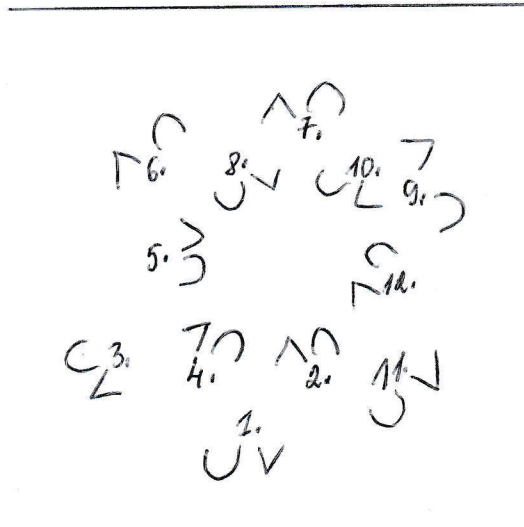 7.
6. 8. 10. 9.
5. 12.
3. 4. 2. 11.
1.